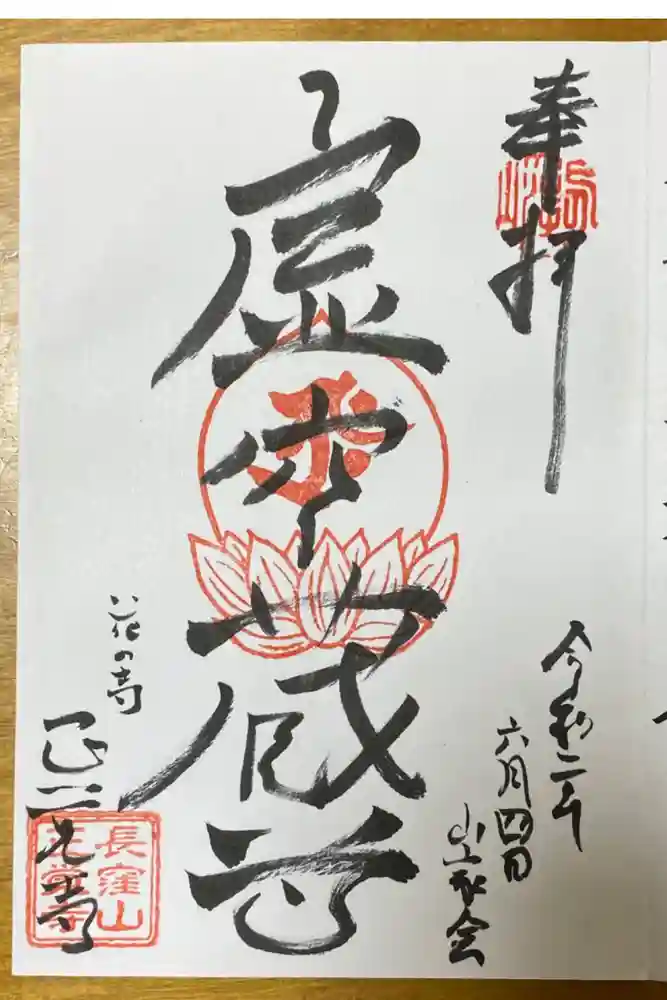 奉拝
令和二年
六月四日
山家会
虚空蔵尊
花の寺
正覚寺
長窪山
正覺寺